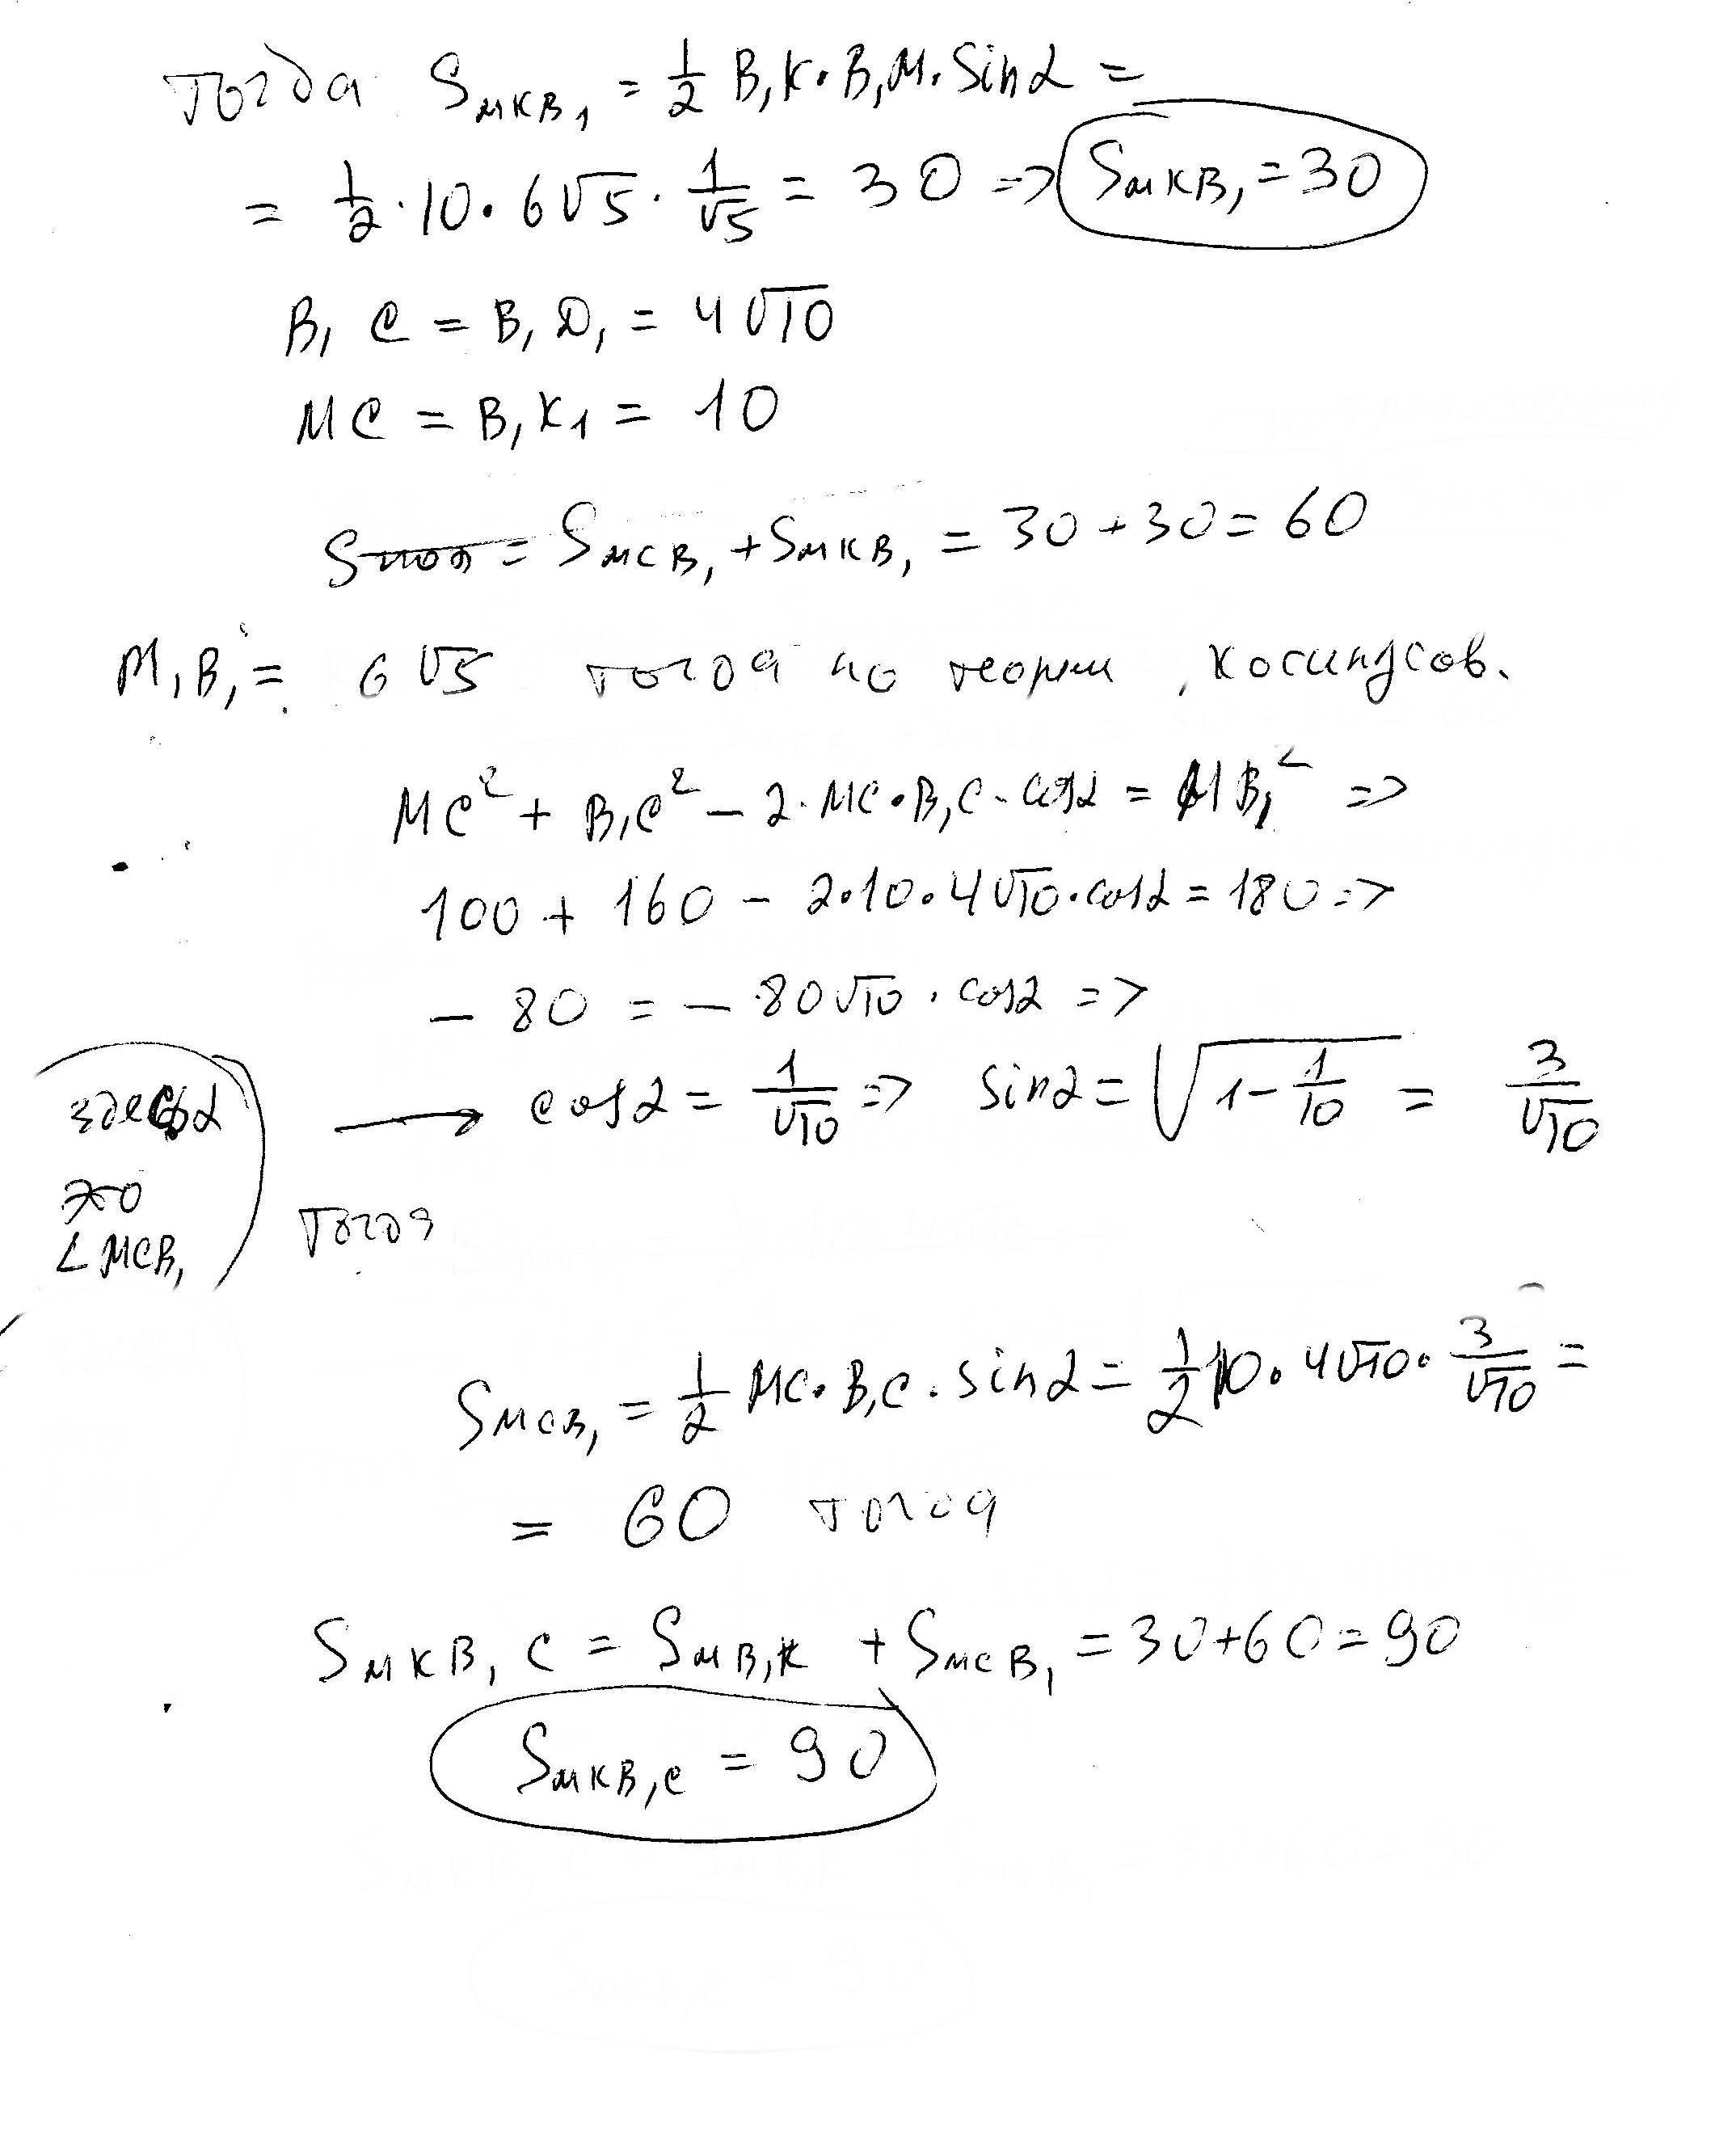 тогда S_MKB₁ = 1/2 B₁K · B₁M · Sin α =
= 1/2 · 10 · 6√5 · 1/√5 = 30 => S_MKB₁ = 30
B₁C = B₁D₁ = 4√10
MC = B₁K₁ = 10
S = S_MCB₁ + S_MKB₁ = 30 + 30 = 60
M₁B₁ = 6√5 тогда по теорем косинусов.
MC² + B₁C² - 2 · MC · B₁C · cos α = MB₁² =>
100 + 160 - 2 · 10 · 4√10 · cos α = 180 =>
- 80 = - 80√10 · cos α =>
здесь α
это
∠MCB₁
→ cos α = 1/√10 => sin α = √(1 - 1/10) = 3/√10
тогда
S_MCB₁ = 1/2 MC · B₁C · sin α = 1/2 10 · 4√10 · 3/√10 =
= 60 тогда
S_MKB₁C = S_MB₁K + S_MCB₁ = 30 + 60 = 90
S_MKB₁C = 90